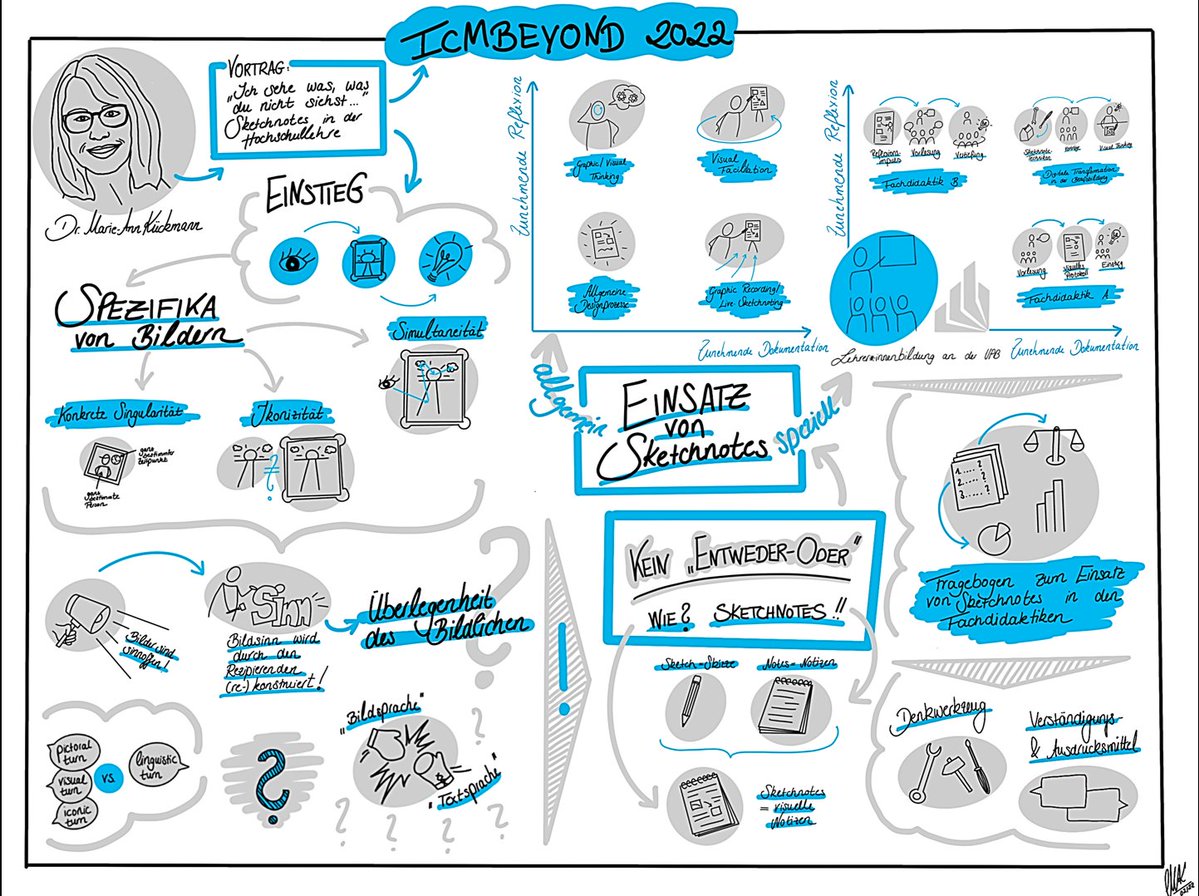 ICMBEYOND 2022
VORTRAG:
„Ich sehe was, was
du nicht siehst..."
Sketchnotes in der
Hochschullehre
Dr. Marie-Ann Kückmann
EINSTIEG
SPEZIFIKA
von Bildern
Simultaneität
Konkrete Singularität
Ikonizität
ganz
bestimmter
Zeitpunkt
ganz
bestimmte
Person
?
Bilder sind
sinnoffen!
Sinn
Bildsinn wird
durch den
Rezipierenden
(re-)konstruiert!
Überlegenheit
des Bildlichen
?
pictoral
turn
visual
turn
iconic
turn
vs.
linguistic
turn
?
„Bildsprache"
„Textsprache"
? ? ? ? ? ?
!
Zunehmende Reflexion
Graphic/Visual
Thinking
Visual
Facilitation
Allgemeine
Designprozesse
Graphic Recording/
Live-Sketchnoting
Zunehmende Dokumentation
Zunehmende Reflexion
Reflexions-
impuls
Vorlesung
Vertiefung
Fachdidaktik B
Sketchnote-
Visual Thinking
Digitale Transformation
in der
Vorlesung
visuelles
Protokoll
Einstieg
Fachdidaktik A
Lehrer:innenbildung an der UPB
Zunehmende Dokumentation
allgemein
EINSATZ
von
Sketchnotes
speziell
KEIN „ENTWEDER-ODER"
WIE? SKETCHNOTES!!
Sketch = Skizze
Notes = Notizen
Sketchnotes
= visuelle
Notizen
1. ...?
2. ...?
3. ...?
Fragebogen zum Einsatz
von Sketchnotes in den
Fachdidaktiken
Denkwerkzeug
Verständigungs-
& Ausdrucksmittel